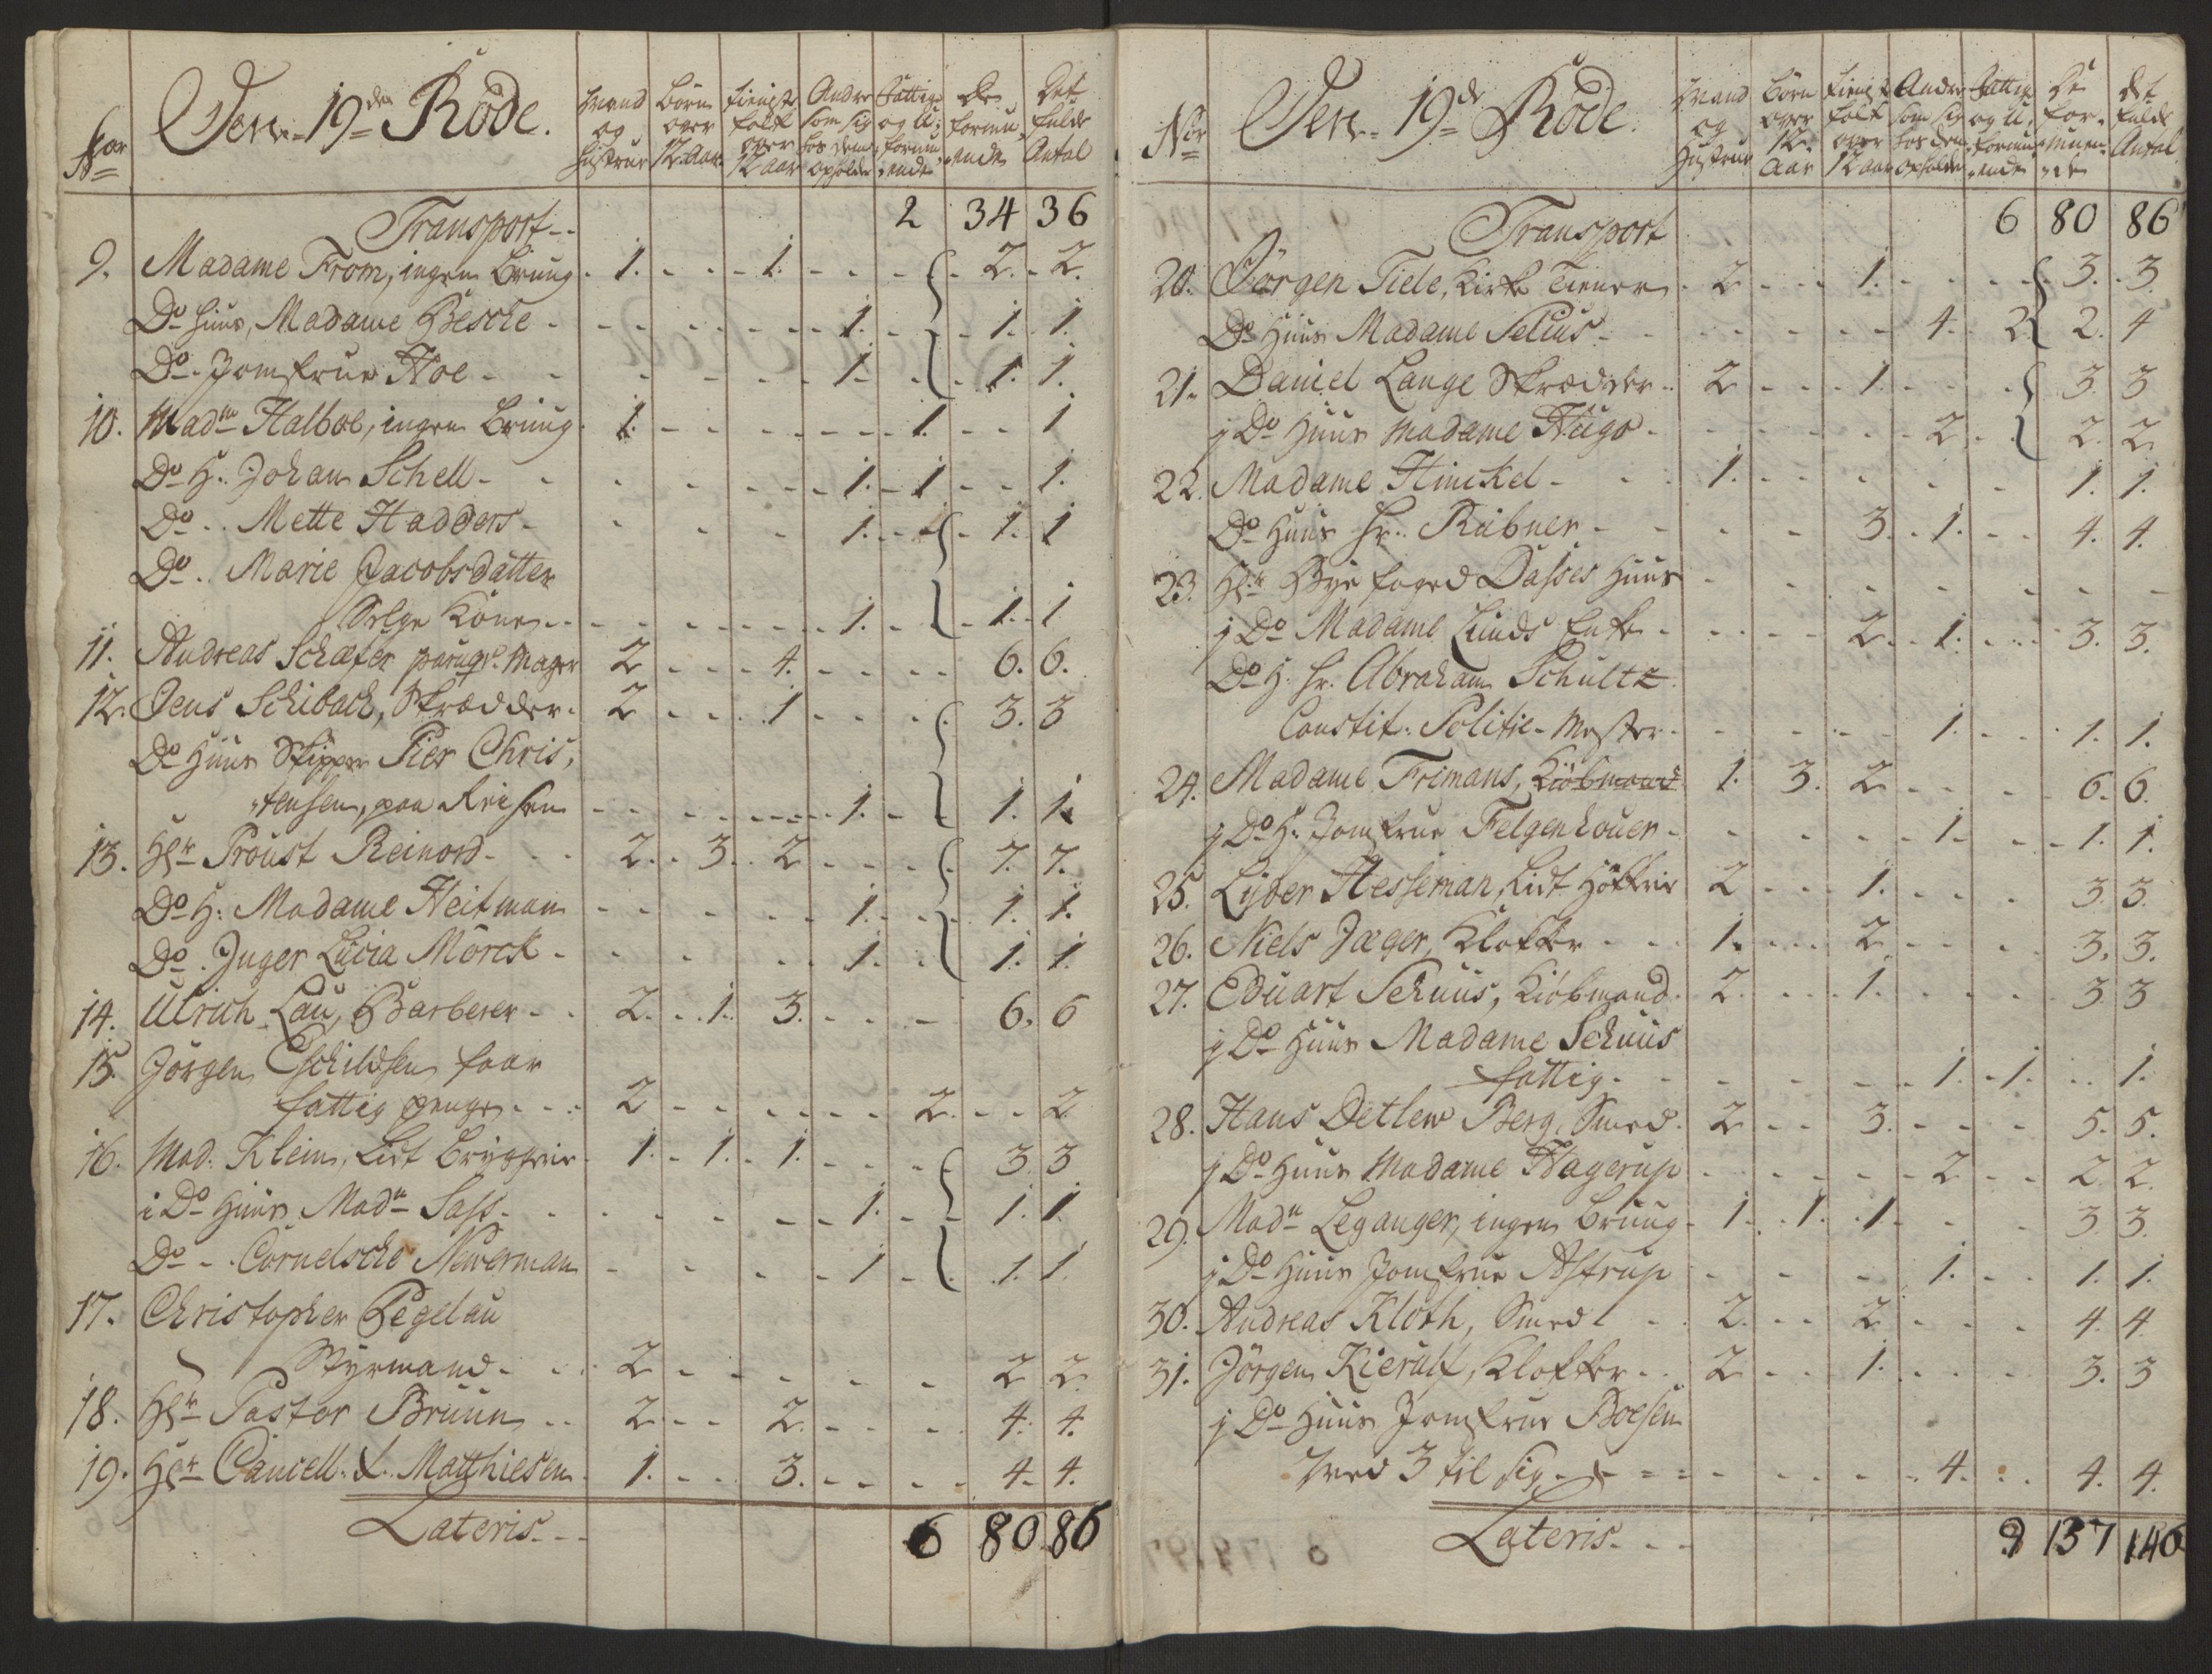 No
Den 19de Rode.
Mand og Hustrue
Börn over 12 Aar
Tienste folk over 12 aar
Andre som sig hos dem opholder
Fattige og U, formu, ende
De formu, ende
Det fulde Antal
Transport - - 2 34 36
9. Madame From, ingen Bruug - 1. - - - 1. - - - - 2. - 2.
Do Huus, Madame Bescke - - - - 1. - - 1. 1.
Do - Jomfrue Hoe - - - 1. - - 1. 1.
10. Madme Halboe, ingen Bruug 1. - - - - 1. - - 1
Do H. Johan Schell - - - 1. - 1 - - 1.
Do - Mette Hadders - - - 1. - - 1. 1
Do - Marie Jacobsdatter
Selge Kone - - - - 1. - - 1. 1
11. Andreas Schæfer paruqv. Mager 2 - - - 4. - - - - 6. 6.
12. Jens Schiback, Skrædder - 2 - - - 1 - - - - 3. 3
Do Huus Skipper Pier Chris,
tensen, paa Reisen - - - - 1. - 1. 1.
13. Hr Proust Reinord - - - 2. - 3. - 2 - - - 7. 7.
Do H: Madame Heitman - - - - 1. - - 1. 1.
Do - Inger Lucia Mörck - - - - 1. - - 1. 1.
14. Ulrich Lau, Barberer - - 2. - 1. 3. - - - 6. 6
15. Jörgen Eschildsen faar
fattig penge - - - 2 - - - - 2. - - 2
16. Mad. Klein, Lidt Bryggerie - 1. - 1. - 1. - - - 3. 3
i Do Huus Madm Sass - - - - 1. - - 1. 1.
Do - Cornelsche Newerman - - - - 1 - - 1. 1.
17. Christopher Pegelau
Styrmand - - - 2 - - - - - 2 2
18. Hr Pastor Bruun - - 2 - - 2. - - - 4. 4.
19. Hr Cancell. L. Matthiesen - 1. - - 3. - - - - 4. 4.
Lateris - - - 6 80 86
No
Den 19de Rode.
Mand og Hustrue
Börn over 12. Aar
Tienst folk over 12 aar
Andre som sig hos dem opholder
Fattig og U, formu, ende
De for- muen- de
det fulde Antal
Transport 6 80 86
20. Jörgen Tiele, Kirke Tiener - 2 - - - 1. - - - - 3. - 3.
Do Huus Madame Selius - - - - 4. 2 2. 4
21. Daniel Lange Skrædder - 2 - - - 1. - - - 3. 3
j Do Huus Madame Hugo - - - - 2 - - 2. 2
22. Madame Hinckel - - - 1. - - - - - 1. 1.
Do Huus Hr. Rübner - - - 3. - 1. - - - 4. 4.
23. Hr Bye foged Dasses Huus - - - - - - -
j Do Madame Lunds Enke - - - 2 - 1. - - - 3. 3.
Do H. Hr. Abraham Schultz
Constit. Politie-Mester - - - - 1. - - - 1. 1.
24. Madame Frimans, Kiöbmand 1. 3. 2 - - - - 6. 6.
j Do H. Jomfrue Felgenhouer - - - - 1. - - - 1. 1.
25. Lyder Hesseman, Lidt Hökkerie 2 - - - 1. - - - 3. 3.
26. Niels Jæger, Klokker - - - 1. - - - 2 - - - 3. 3.
27. Eduart Schuus, Kiöbmand. 2. - - - 1. - - - - 3 3
j Do Huus Madame Schuus
fattig - - - - - 1. - 1. - - 1.
28. Hans Detlew Berg, Smed. 2 - - 3. - - - 5. 5.
j Do Huus Madame Hagerup - - - - 2 - - 2. 2.
29. Madm Leganger, ingen Bruug - 1. - 1. - 1 - - - 3. 3.
j Do Huus Jomfrue Astrup - - - 1. - - - 1. 1.
30. Andreas Kloth, Smed - - 2. - - 2. - - - 4. 4
31. Jörgen Kierulf, Klokker - - 2 - - 1. - - - - 3. 3
j Do Huus Jomfrue Boesen
med 3 til sig - - - - - - 4. - - 4. 4.
Lateris - - - 9 137 146